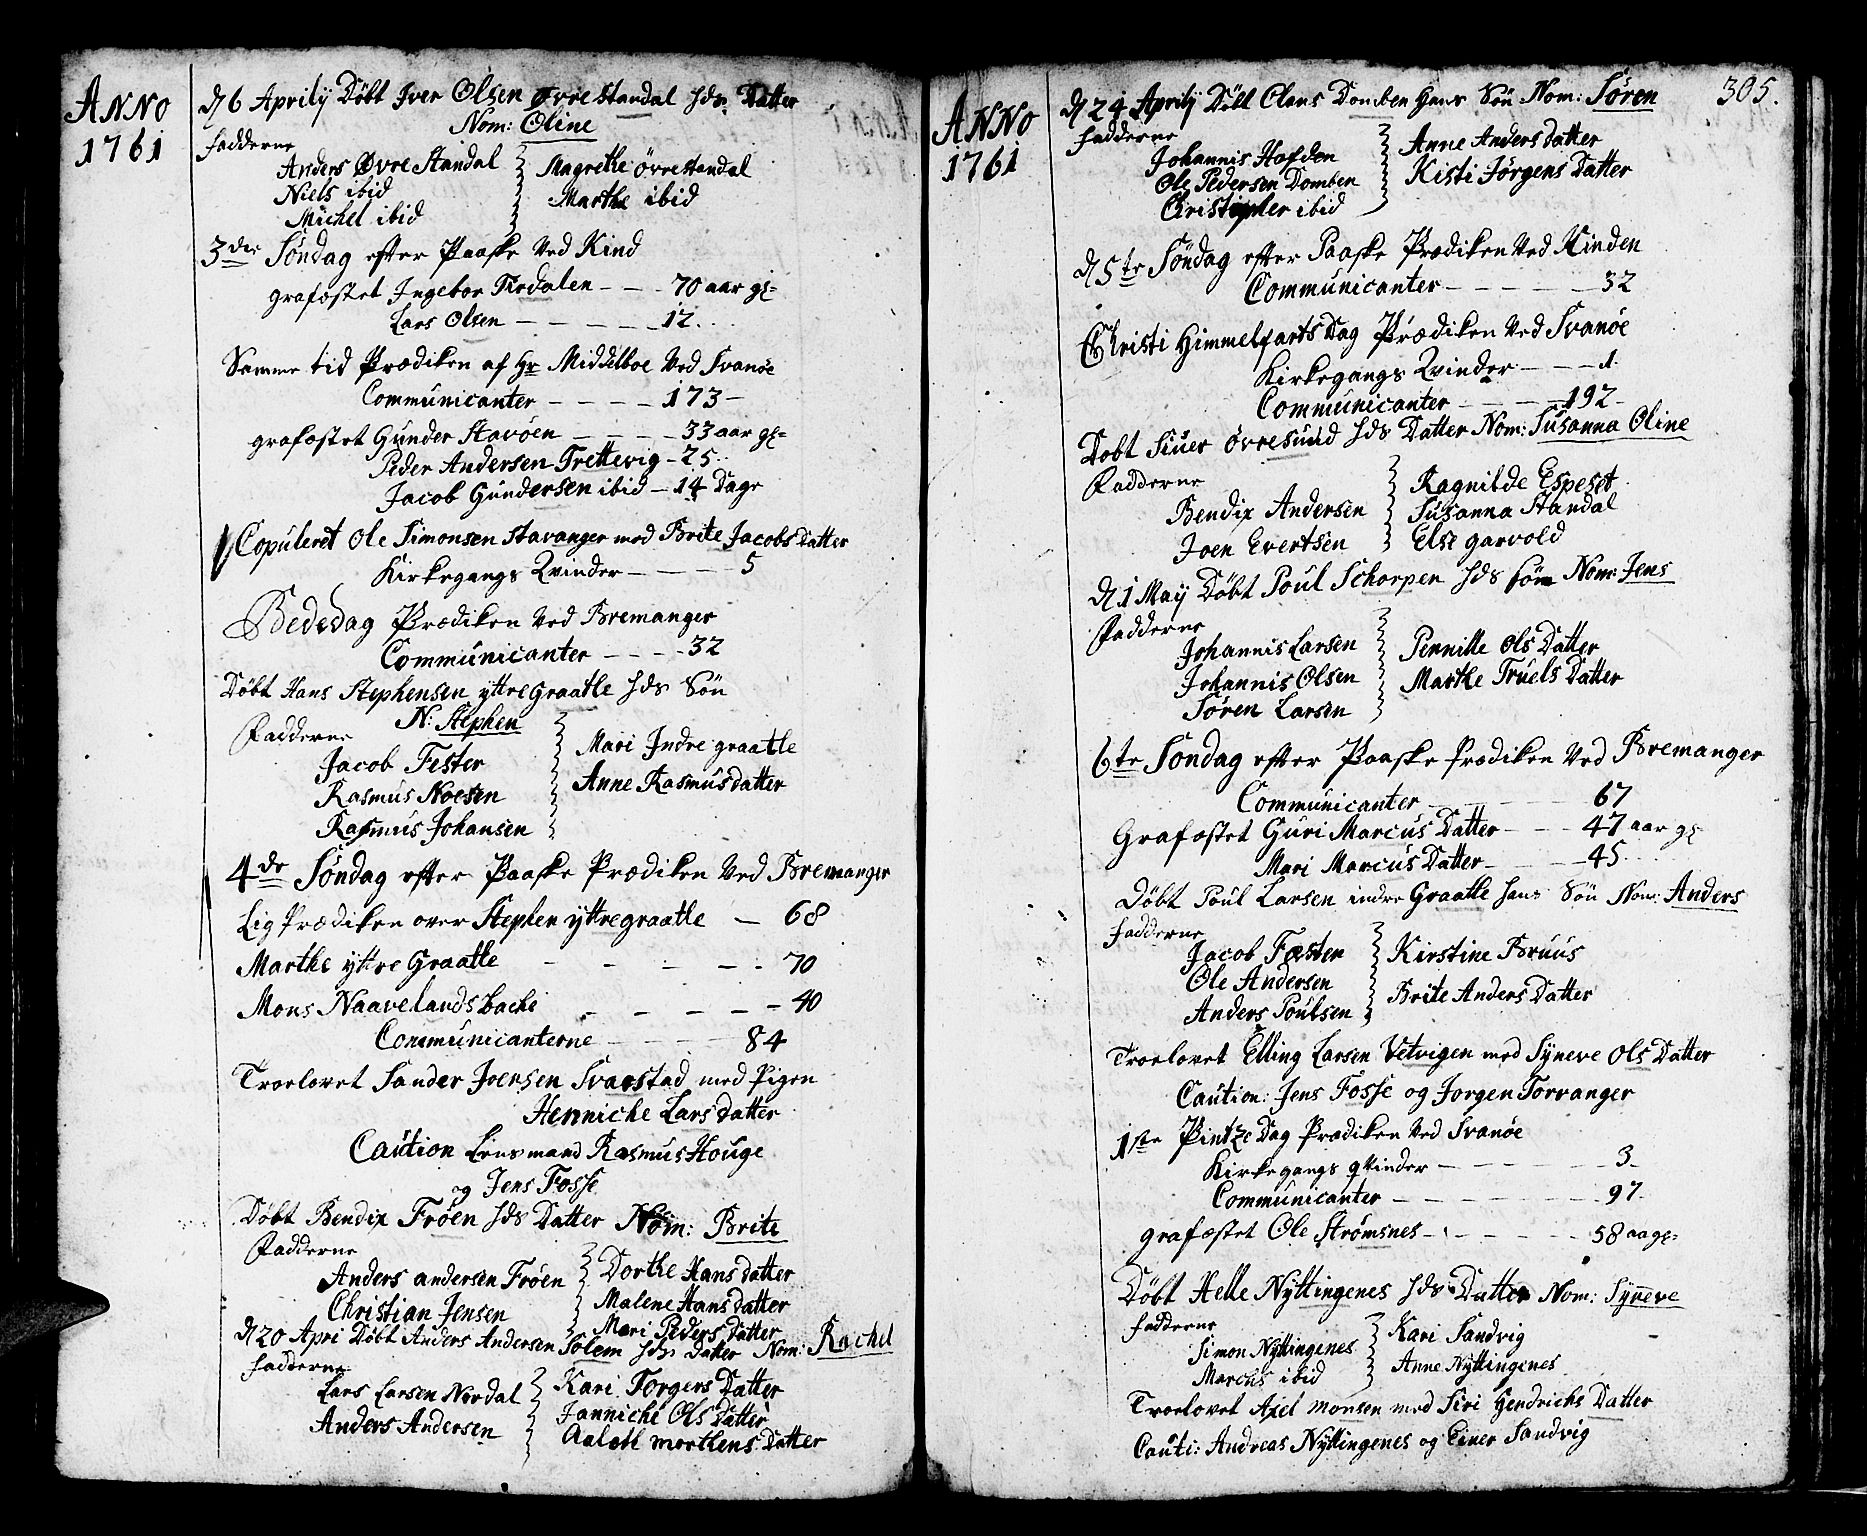 ANNO
1761
d 6 Aprily Döbt Iver Olsen Øvre Standal hds Datter
Nom: Oline
Fadderne
Anders Øvre Standal
Niels ibid
Michel ibid
Magrethe övrestandal
Marthe ibid
3die Söndag efter Paaske ved Kind
grafæstet Ingebor Tredalen - - - 70 aar gl=
Lars Olsen - - - - - 12
Samme tid Prædiken af Hr Middelboe Ved Svanöe
Communicanter - - - - 173 -
grafæstet Gunder Stavöen - - - - 33 aar gl=
Peder Andersen Trettevig - 25
Jacob Gundersen ibid - 14 Dage
Copuleret Ole Simonsen Stavanger med Brite Jacobs Datter
Kirkegangs Qvinder - - - - 5
Bededag Prædiken ved Bremanger
Communicanter - - - - 32
Döbt Hans Stephensen yttre graatle hds Sön
N: Stephen
Fadderne
Jacob Fester
Rasmus Noesen
Rasmus Johansen
Mari Indre graatle
Anne Rasmusdatter
4de Söndag efter Paaske Prædiken Ved Bremanger
Lig Prædiken over Stephen yttregraatle - 68
Marthe yttre Graatle - - - - - 70
Mons Naavelandsbache - - - - - 40
Communicanterne - - - - 84
Troelovet Sander Joensen Svarstad med Pigen
Henniche Lars datter
Caution Lensmand Rasmus Houge
og Jens Fosse
Döbt Bendix Fröen hds Datter Nom: Brite
Fadderne
Anders andersen Fröen
Christian Jensen
Dorthe Hans datter
Malene Hans datter
Mari Peders Datter
d 20 Apri Döbt Anders Andersen Solem hds datter Nom: Rachel
Fadderne
Lars Larsen Nordal
Anders Andersen
Kari Torgers Datter
Janniche Ols Datter
Aaleth Morthens Datter
305.
ANNO
1761
d 24 Aprily Döbt Claus Domben hans Sön Nom: Sören
Fadderne
Johannis Hofden
Ole Pedersen Domben
Christopher ibid
Anne Anders datter
Kisti Jörgens Datter
d 5te Söndag efter Paaske Prædiken Ved Kinden
Communicanter - - - - - 32
Christi Himmelfarts Dag Prædiken Ved Svanöe
Kirkegangs Qvinder - - - 1
Communicanter - - - - 192 -
Döbt Siuer övresund hds Datter Nom: Susanna Oline
Fadderne
Bendix Andersen
Joen Evertsen
Ragnilde Espeset
Susanna Standal
Else garvold
d 1 May Döbt Poul Schorpen hds sön Nom: Jens
Fadderne
Johannis Larsen
Johannis Olsen
Sören Larsen
Pernille Ols Datter
Marthe Truels Datter
6te Söndag efter Paaske Prædiken Ved Bremanger
Communicanter - - - - 67
Grafæstet Guri Marcus Datter - - - 47 aar gl=
Mari Marcus Datter - - - 45
Döbt Poul Larsen indre Graatle hans Sön Nom: Anders
Fadderne
Jacob Fæster
Ole Andersen
Anders Poulsen
Kirstine Bruus
Brite Anders Datter
Troelovet Elling Larsen Vetvigen med Syneve Ols Datter
Caution: Jens Fosse og Jorgen Torvanger
1ste Pintze Dag Prædiken Ved Svanöe
Kirkegangs qvinder - - - - - 3 -
Communicanter - - - - - - 97
grafæstet Ole Strömsnes - - - - 58 aar gl=
Döbt Helle Nyttingenes hds Datter Nom: Syneve
Fadderne
Simon Nyttingenes
Marcus ibid
Kari Sandvig
Anne Nyttingenes
Troelovet Axel monsen med Siri Hendrichs Datter
Cauti: Andreas Nyttingenes og Einer Sandvig